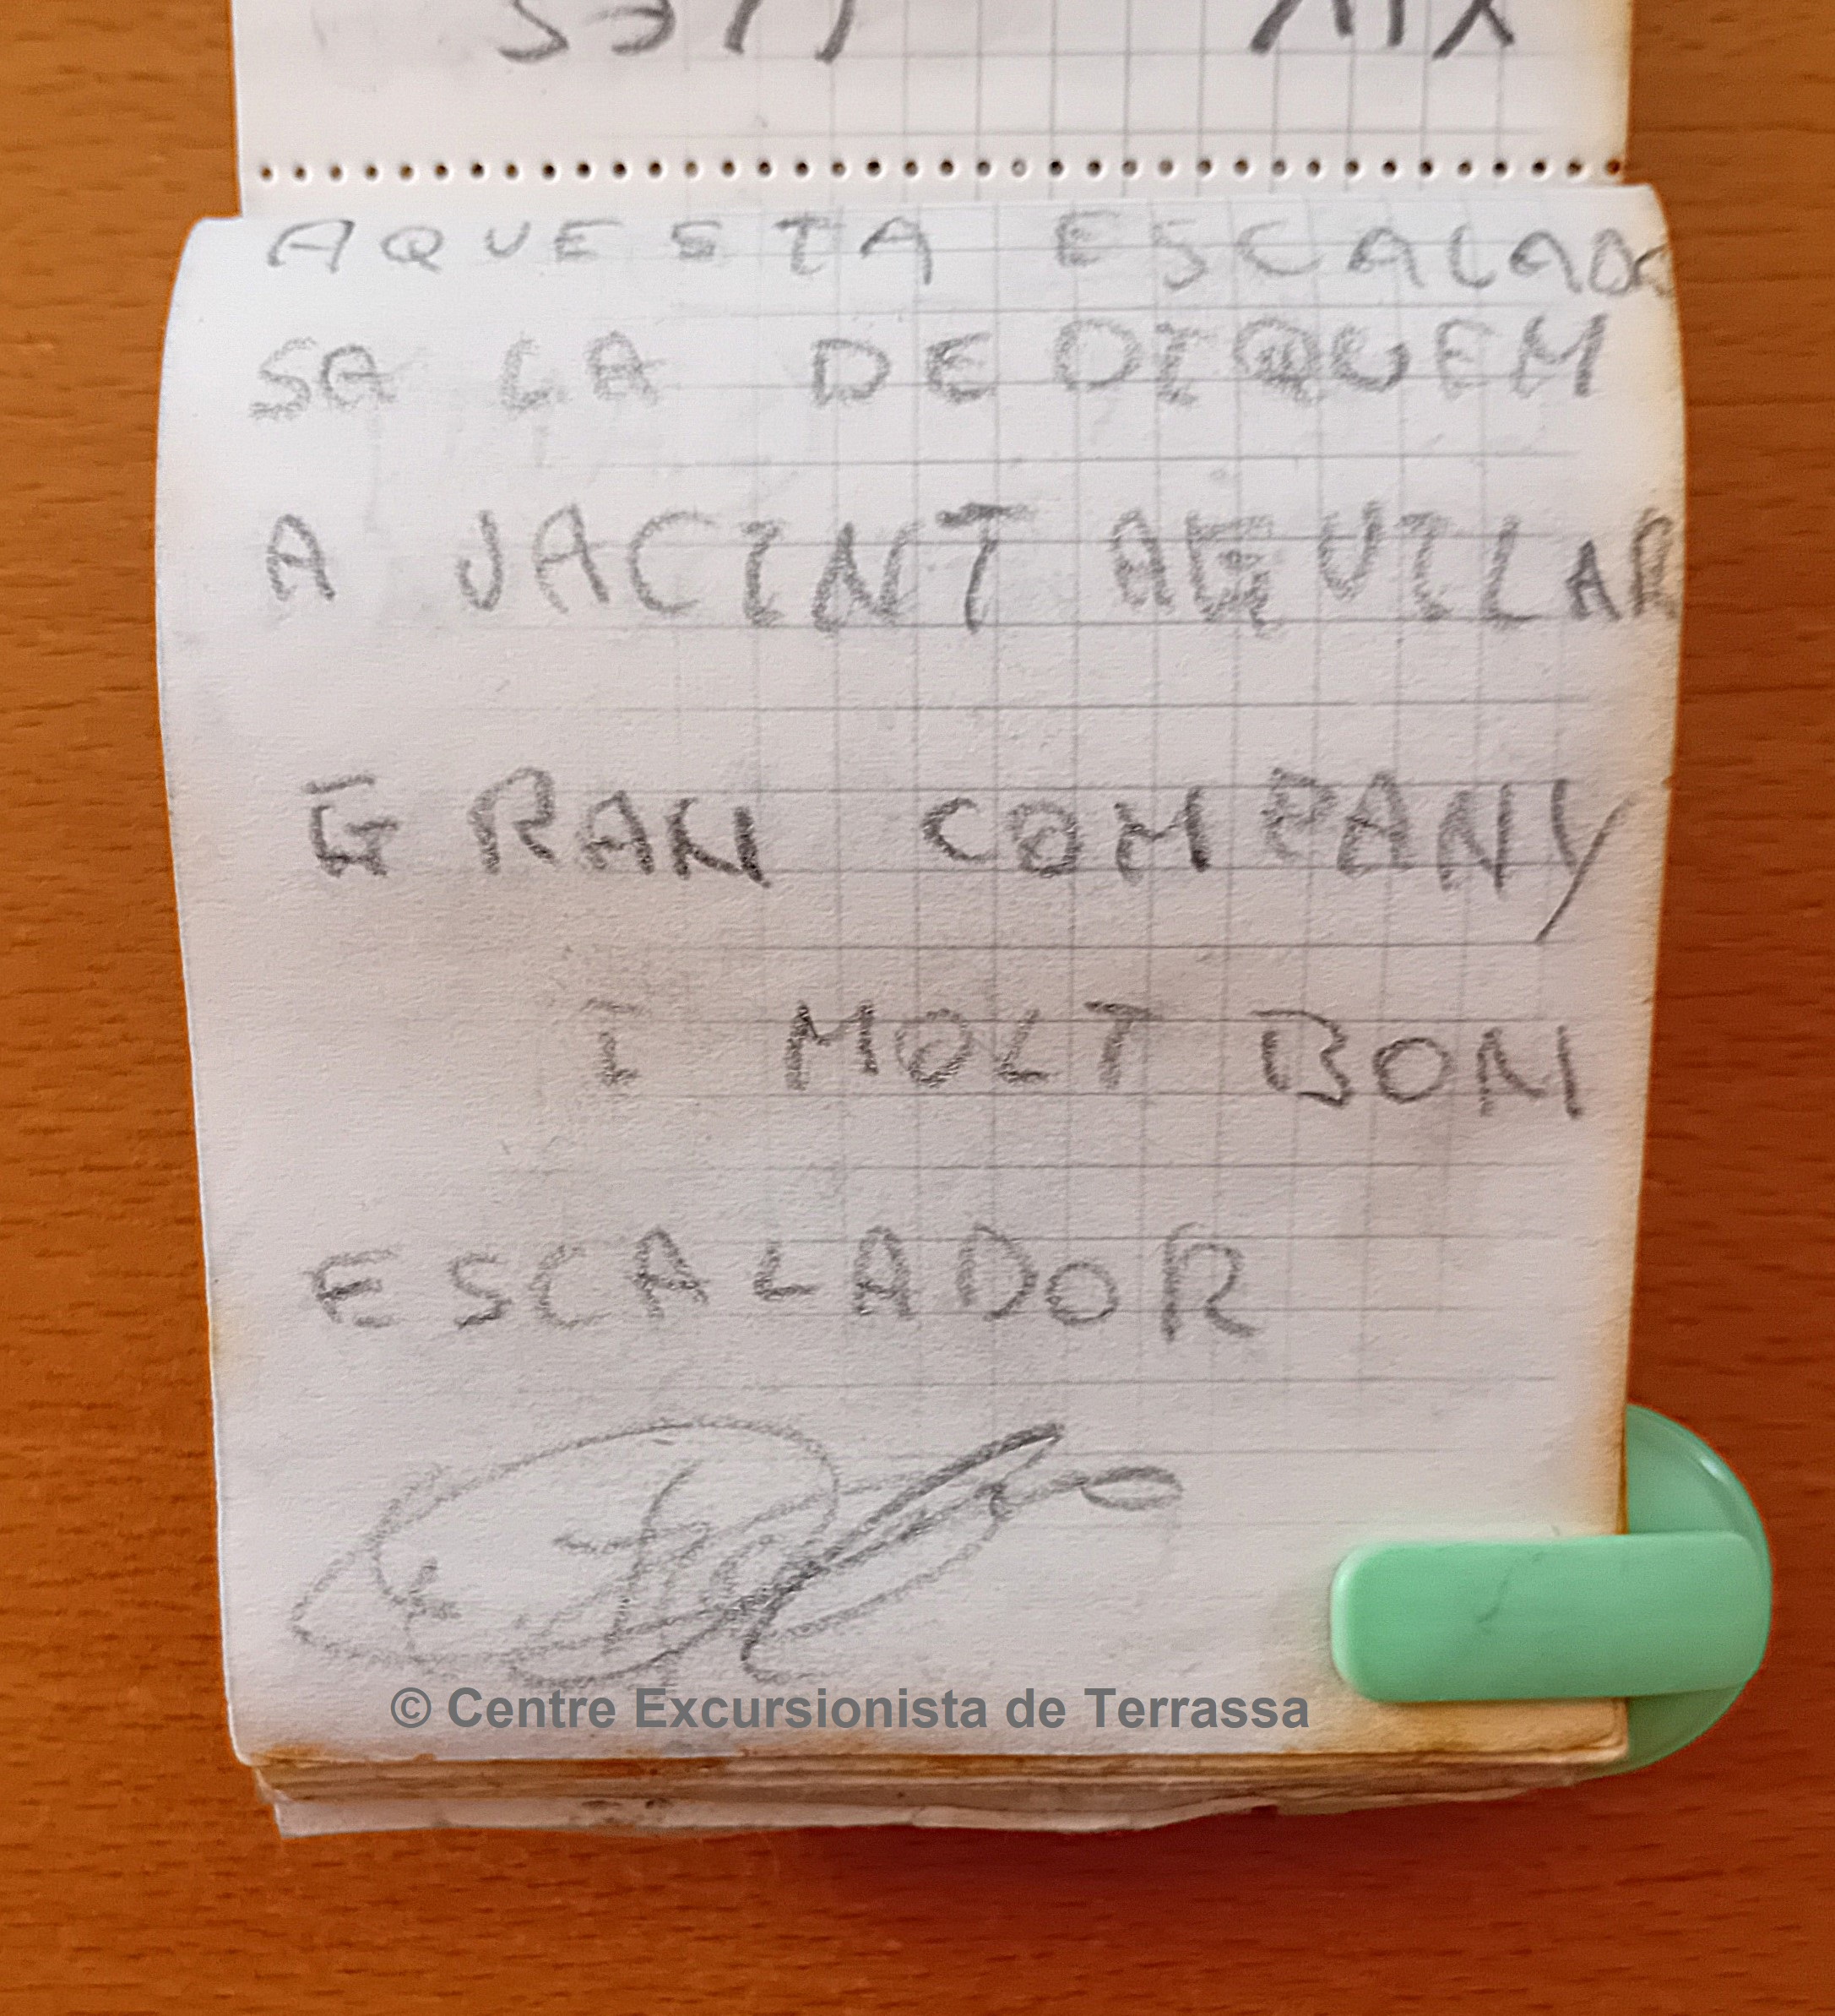 AQUESTA ESCALADO
SA LA DEDIQUEM
A JACINT AGUILAR
GRAN COMPANY
I MOLT BON
ESCALADOR
© Centre Excursionista de Terrassa